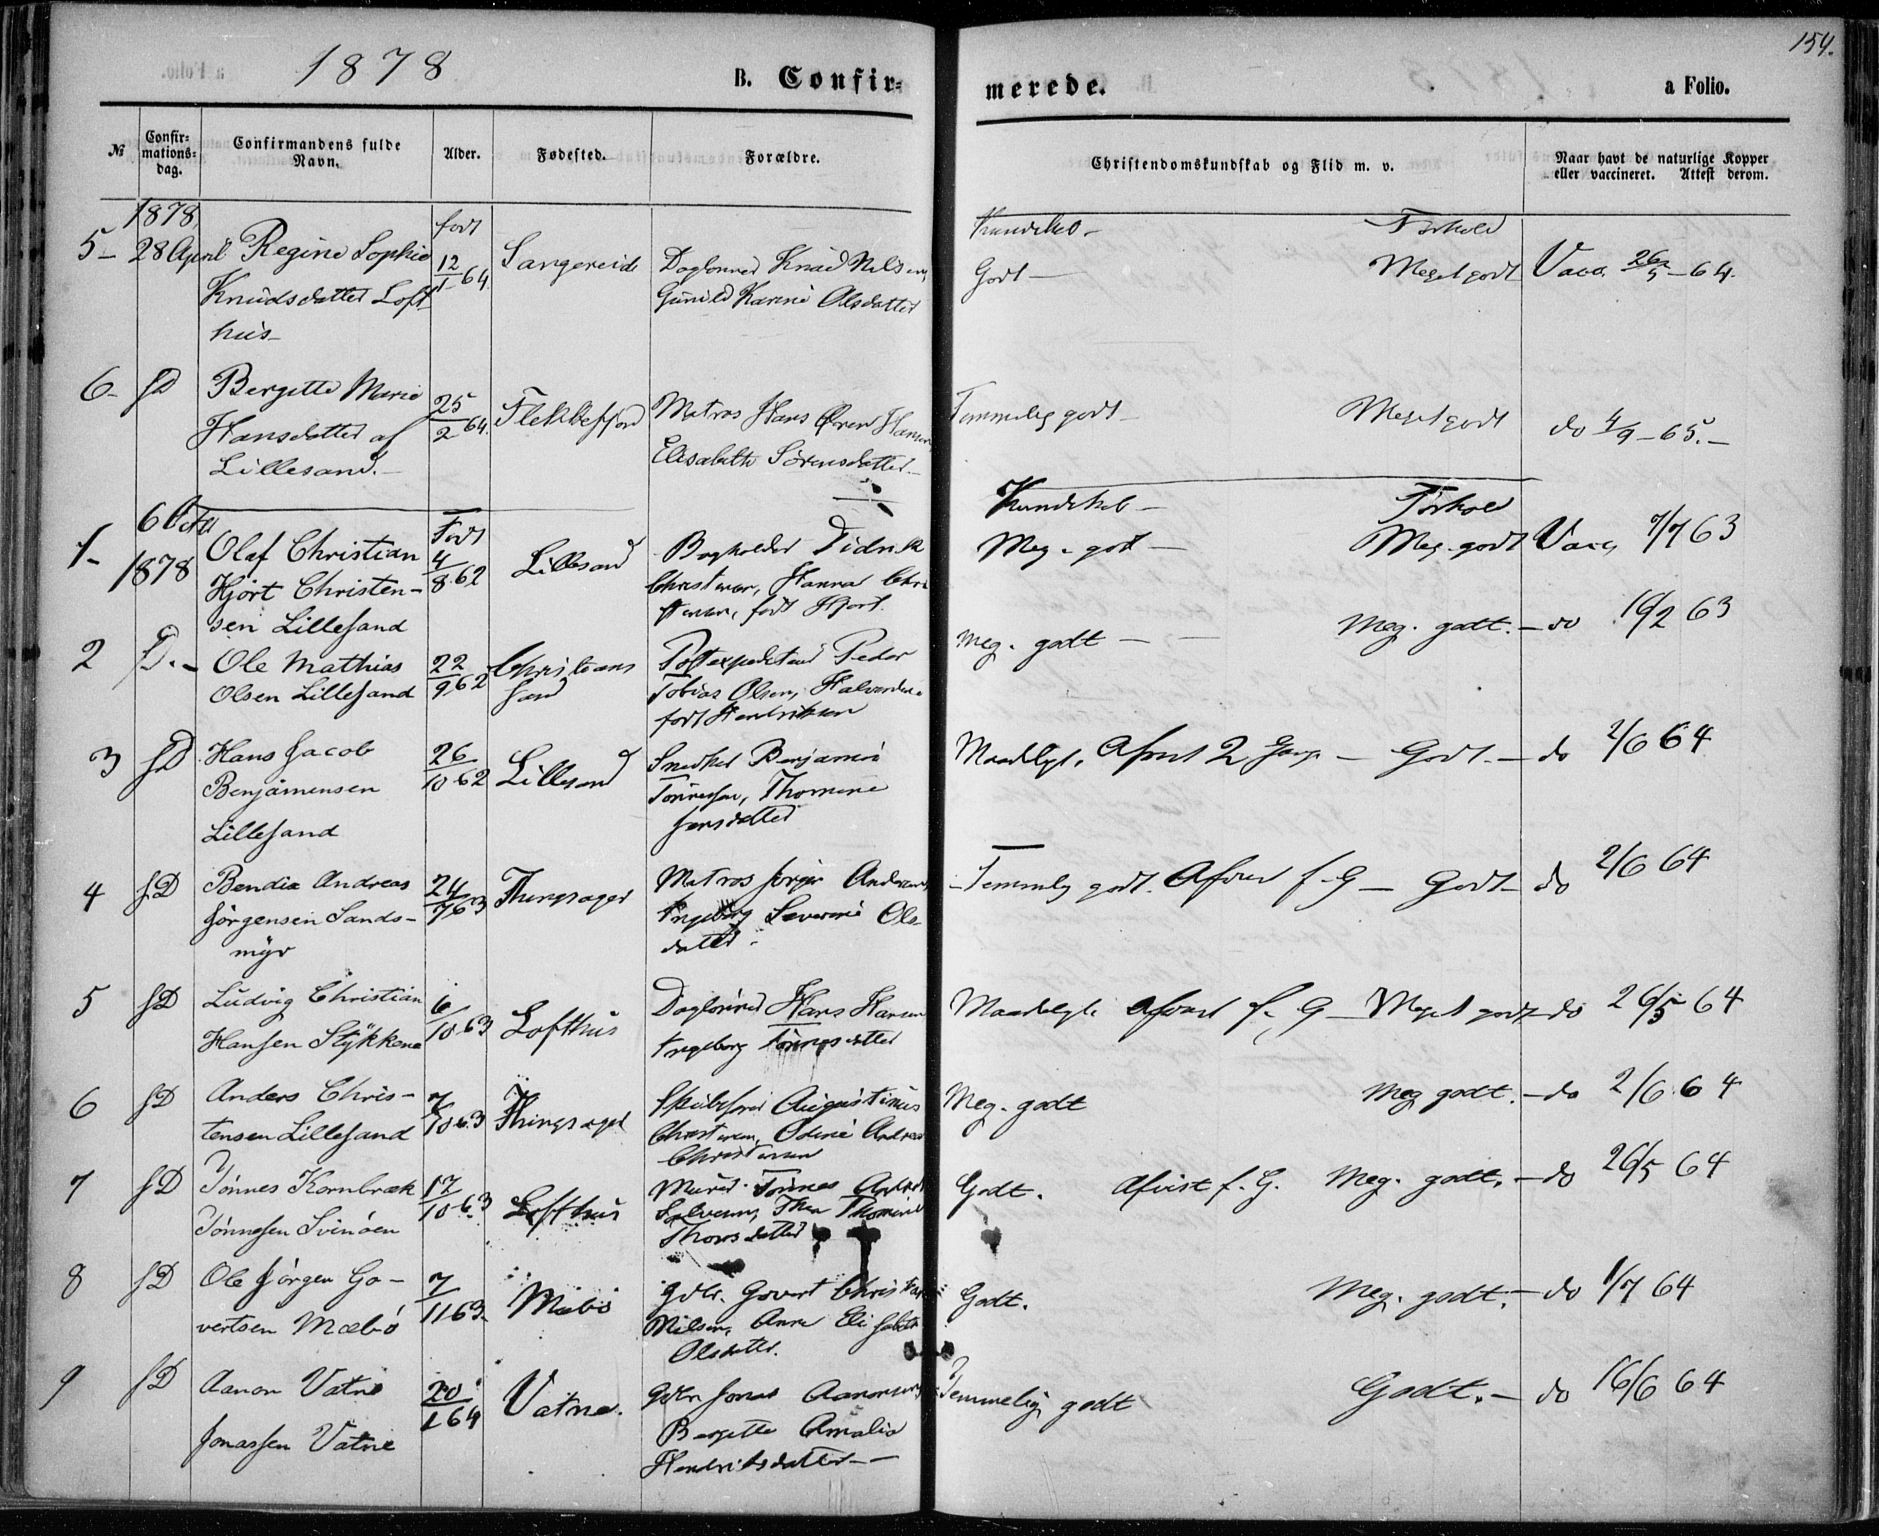 1878
B. Confir=
merede.
a Folio.
154.
№
Confir=
mations=
dag.
Confirmandens fulde
Navn.
Alder.
Fødested.
Forældre.
Christendomskundskab og Flid m. v.
Naar havt de naturlige Kopper
eller vaccineret. Attest derom.
1878,
født
Kundskab -
Forhold
5- 28 April Regine Sophie
Knudsdatter Loft
hus-
12/1 64
Sangereid
Daglønner Knud Nilsen,
Gunild Karine Olsdatter
Godt -
Meget godt
Vacc. 26/5 - 64.
6- sD Bergitte Marie
Hansdatter af
Lillesand.-
25/2 64.
Flekkefjord
Matros Hans Hansen
Elisabeth Sørensdatter-
Temmelig godt -
Meget godt
do 4/9 - 65.-
6 Octo
1878
Født
Kundskab -
Forhold
1- Olaf Christian
Hjort Christen-
sen Lillesand
4/8 62
Lillesand
Bogholder Didrik
Christensen, Hanna Chri
stensen, født Hjort.
Meg. godt -
Meg. godt
Vacc, 7/7 63
2 D.- Ole Mathias
Olsen Lillesand
22/9 62
Christians
sand
Postexpediteur Peder
Tobias Olsen, Halvardine
født Hendriksen
Meg. godt - -
Meg. godt. - do 16/2 63
3 sD Hans Jacob
Benjaminsen
Lillesand
26/10 62
Lillesand
Snedker Benjamin
Tønnesen, Thomine
Jensdatter
Maadeligt. Afvist 2 Gang - Godt. - do 2/6 64
4 sD Bendix Andreas
Jørgensen Sands-
myr
24/7 63
Thingsager
Matros Jørgen Andersen
Ingeborg Severine Ols
datter.
- Temmelig godt. Afvist f. G - Godt - do 2/6 64
5 sD Ludvig Christian
Hansen Stykkene
6/10 63
Lofthus
Daglønner Hans Hansen
Ingeborg Tønnesdatter
Maadeligt. afvist f. G - Meget godt - do 26/5 64
6 sD Anders Chris-
tensen Lillesand
7/10 63
Thingsager
Augustinus
Christensen, Odine Andrea
Christensen
Meg. godt
Meg godt. - do 2/6 64
7 sD Tønnes Kornbræk
Tønnesen Svinøen
17/10 63
Lofthus
Murer Tønnes Andreas
Salvesen, Thomine
Thorsdatter
Godt. Afvist f. G. Meg. godt. - do 26/5 64
8 sD Ole Jørgen Go-
vertsen Mæbø
7/11 63.
Mæbø
Gdbr. Govert Christian
Nilsen, Anne Elisabeth
Olsdatter.
Godt.
Meg. godt. - do 1/7 64
9 sD Aanon Vatne
Jonassen Vatne
20/1 64
Vatne.
Gdbr Jonas Aanonsen,
Bergitte Amalia
Hendriksdatter - -
Temmelig godt
Godt. - do 16/6 64